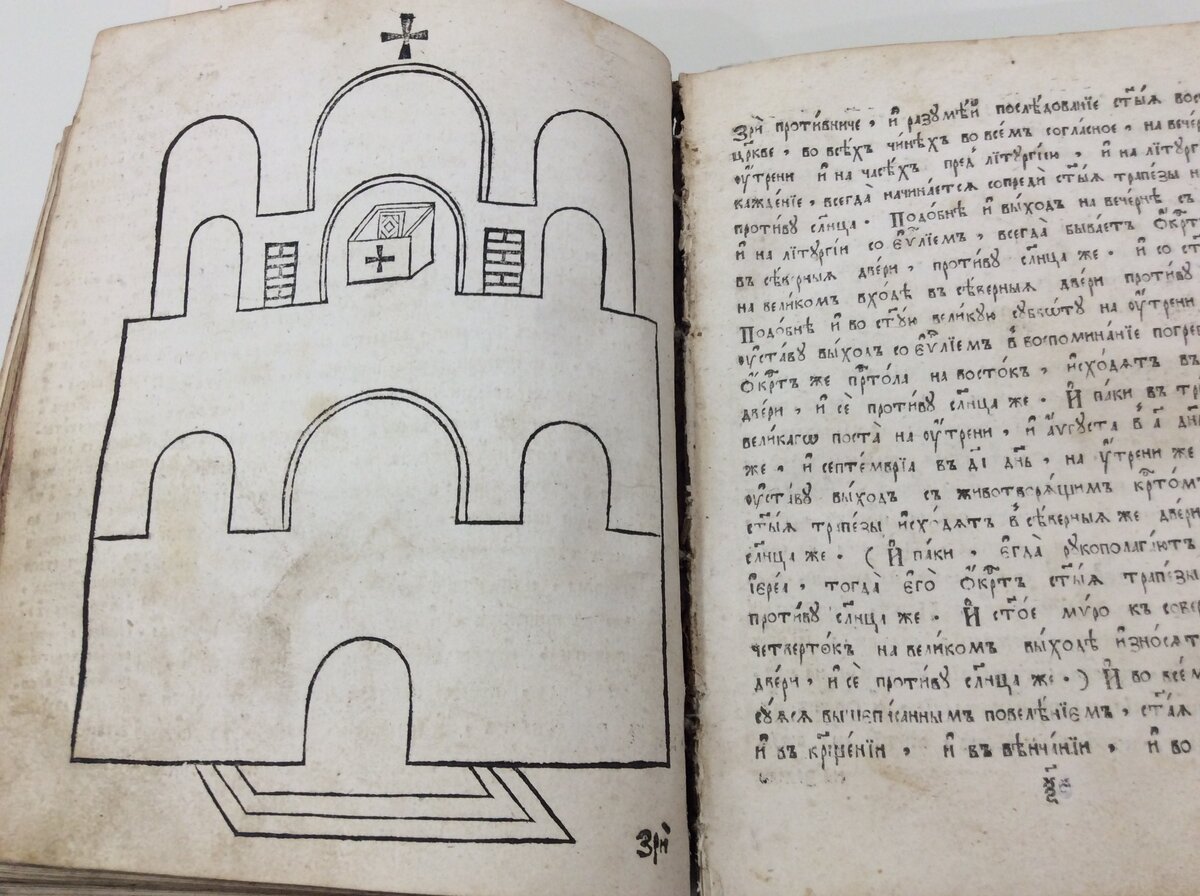 Зрѝ
Зрѝ проти́вниче, и҆ разꙋмѣ́й послѣ́дованїе ст҃ы́ѧ вос
цр҃кве, во всѣ́хъ чинѣ́хъ во все́мъ согла́сное, на вече́р
ᲂу҆́трени и҆ на часѣ́хъ пред̾ лїтꙋргі́ею, и҆ на лїтꙋрг
кажде́нїе, всегда̀ начина́етсѧ сопредѝ ст҃ы́ѧ трапе́зы н
проти́вꙋ сл҃нца. Подо́бнѣ и҆ вы́ходъ на вече́рнѣ съ
и҆ на лїтꙋргі́и со є҆ѵⷢ҇лїемъ, всегда̀ быва́етъ ѻ҆́крⷭ҇т
въ сѣ́верныѧ две́ри, проти́вꙋ сл҃нца же. и҆ со ст
на вели́комъ вхо́дѣ въ сѣ́верныѧ две́ри проти́вꙋ
Подо́бнѣ и҆ во ст҃ꙋ́ю вели́кꙋю сꙋббѡ́тꙋ на ᲂу҆́трени
ᲂу҆ста́вꙋ вы́ходъ со є҆ѵⷢ҇лїемъ в̾ воспомина́нїе погре
ѻ҆́крⷭ҇тъ же прⷭ҇то́ла на восто́къ, и҆схо́дѧтъ въ
две́ри, и҆ сѐ проти́вꙋ сл҃нца же. И҆ па́ки въ тр
вели́кагѡ поста̀ на ᲂу҆́трени, и҆ а҆́ѵгꙋста в̾ а҃ дн҃
же, и҆ септе́мврїа въ д҃і дн҃ь, на ᲂу҆́трени же
ᲂу҆ста́вꙋ вы́ходъ съ животворѧ́щимъ крⷭ҇то́м
ст҃ы́ѧ трапе́зы и҆схо́дѧтъ в̾ сѣ́верныѧ же две́ри
сл҃нца же. (И҆ па́ки, є҆гда̀ рꙋкополага́ютъ
і҆ере́а, тогда̀ є҆го̀ ѻ҆́крⷭ҇тъ ст҃ы́ѧ трапе́зы
проти́вꙋ сл҃нца же. И҆ ст҃о́е мѵ́ро къ сове
четверто́къ на вели́комъ вы́ходѣ и҆зно́сѧт
две́ри, и҆ сѐ проти́вꙋ сл҃нца же.) И҆ во все́м
сꙋ́ѧсѧ вышепи́саннымъ повелѣ́нїемъ, ст҃а́ѧ
и҆ въ крⷭ҇ще́нїи, и҆ въ вѣнча́нїи, и҆ во